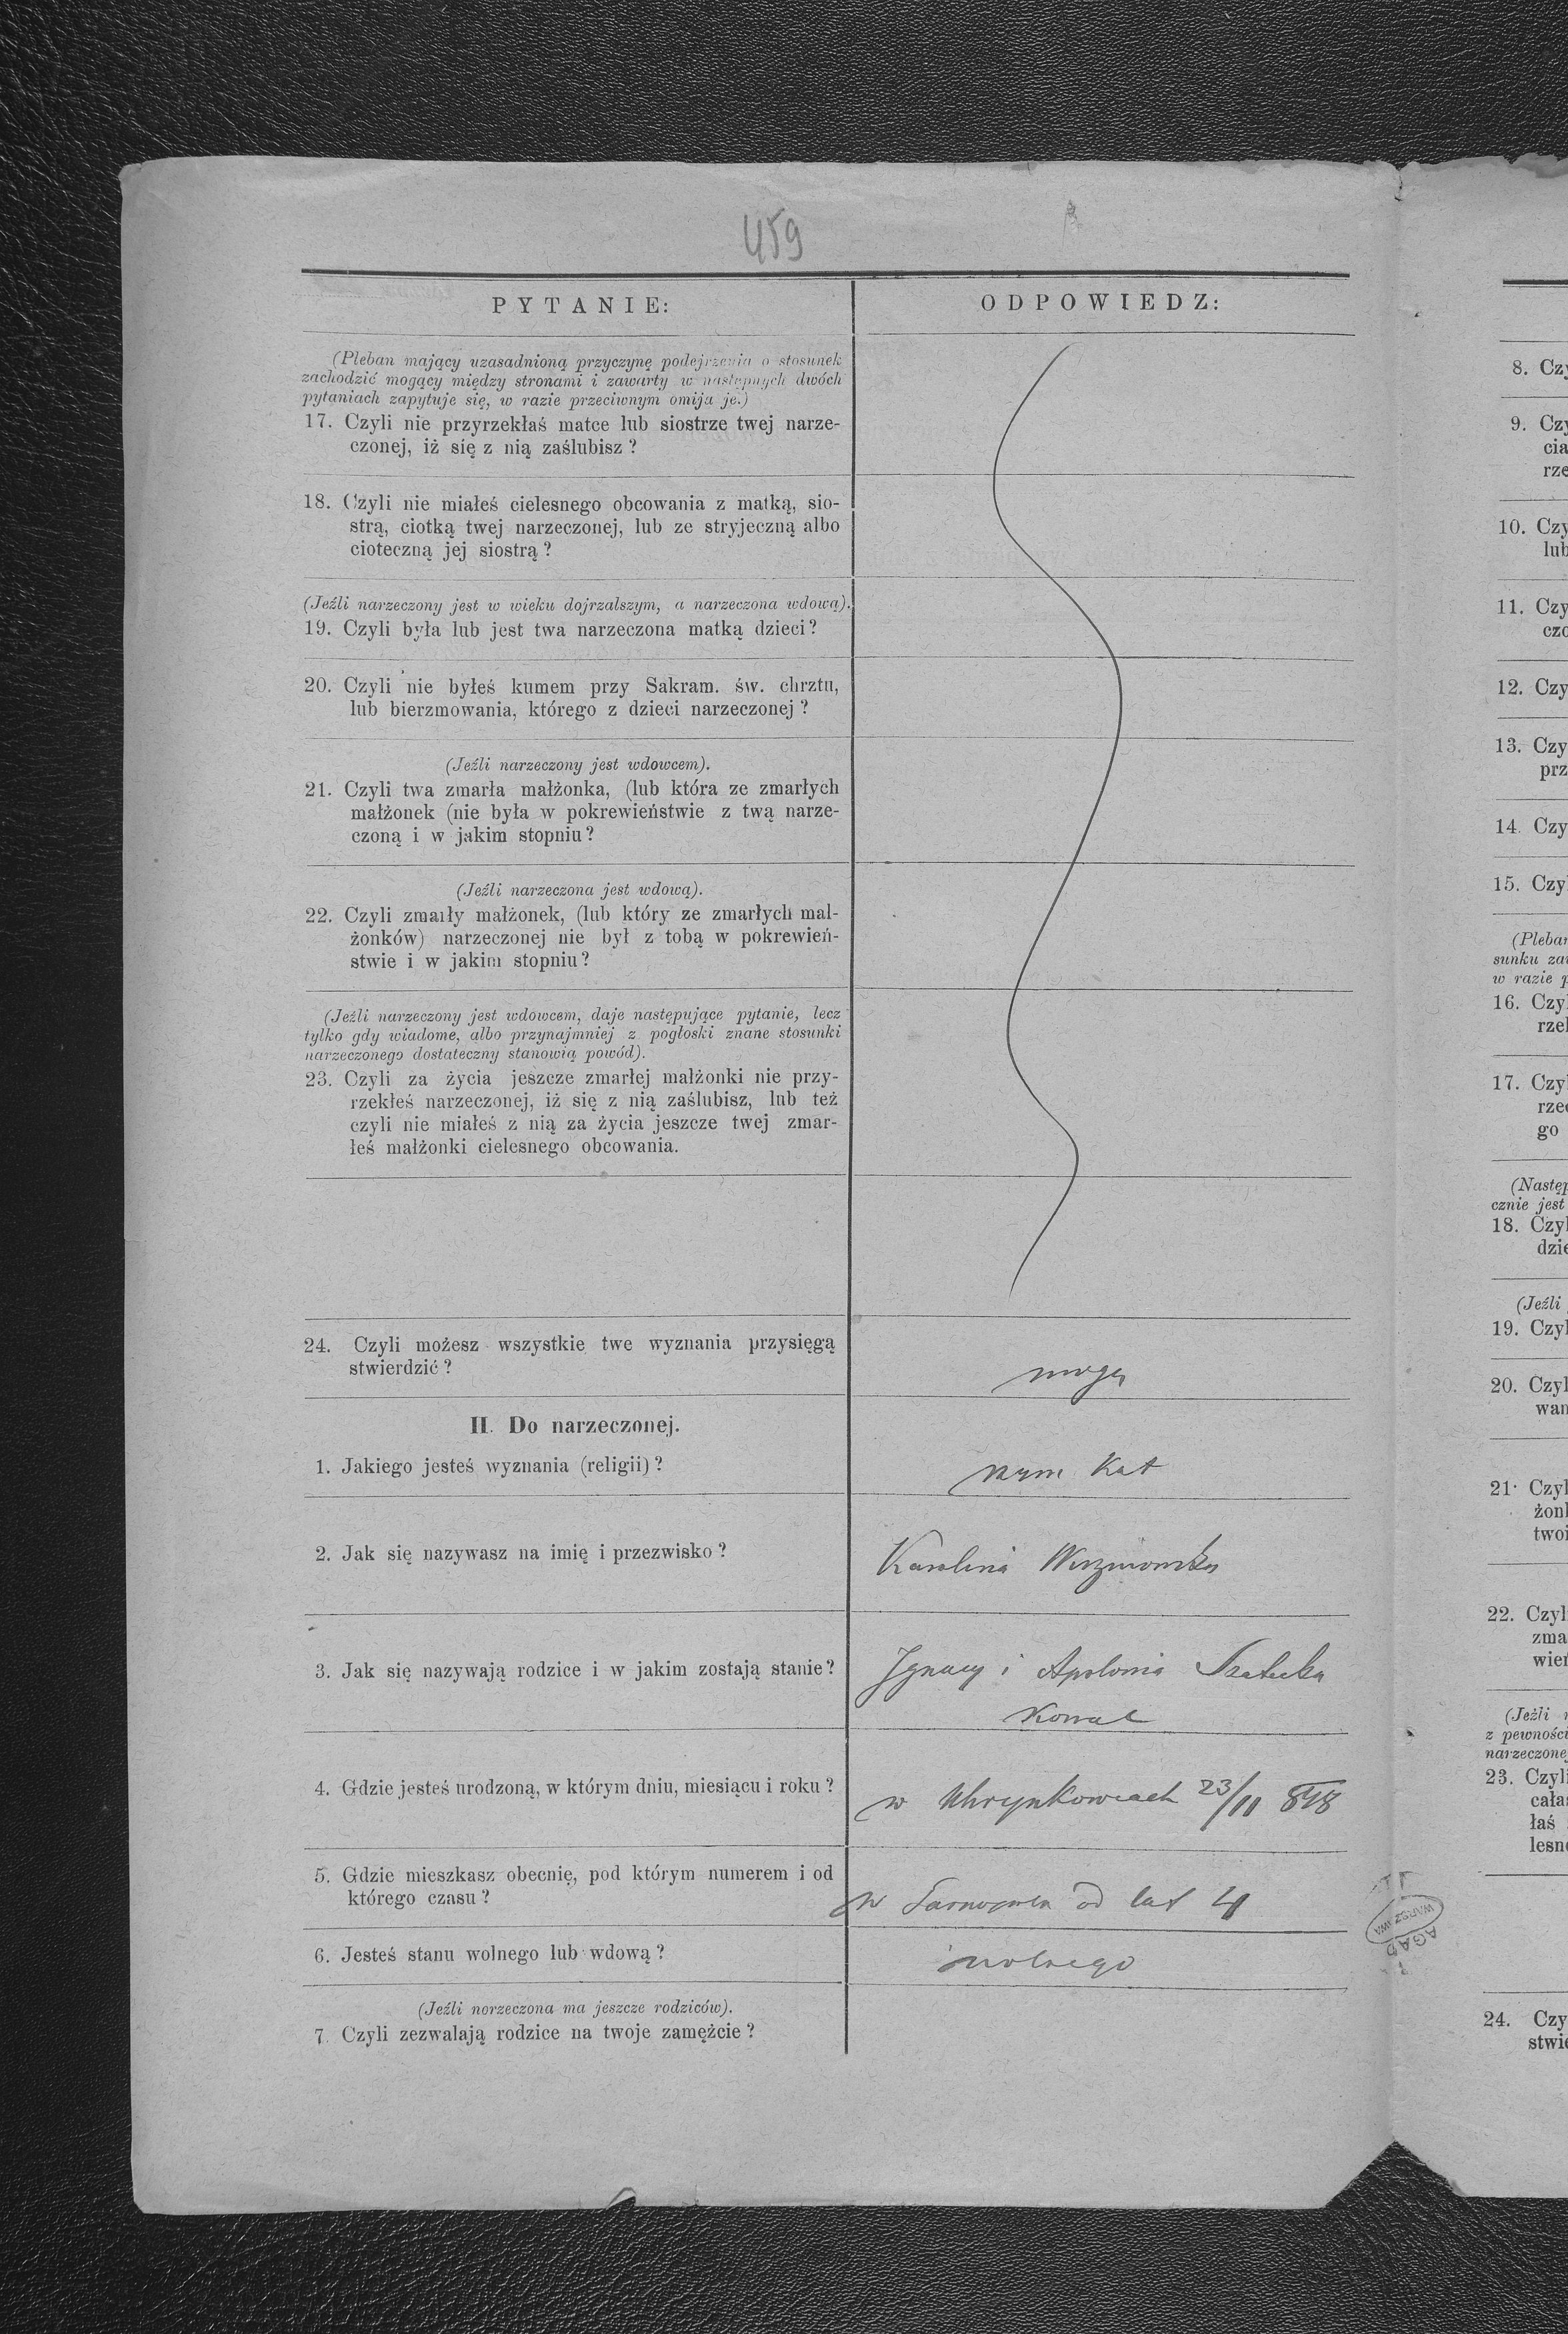 459
PYTANIE:
ODPOWIEDZ:
(Pleban mający uzasadnioną przyczynę podejrzenia o stosunek
zachodzić mogący między stronami i zawarty w następnych dwóch
pytaniach zapytuje się, w razie przeciwnym omija je.)
17. Czyli nie przyrzekłaś matce lub siostrze twej narze-
czonej, iż się z nią zaślubisz?
18. Czyli nie miałeś cielesnego obcowania z matką, sio-
strą, ciotką twej narzeczonej, lub ze stryjeczną albo
cioteczną jej siostrą?
(Jeźli narzeczony jest w wieku dojrzalszym, a narzeczona wdową).
19. Czyli była lub jest twa narzeczona matką dzieci?
20. Czyli nie byłeś kumem przy Sakram. św. chrztu,
lub bierzmowania, którego z dzieci narzeczonej?
(Jeźli narzeczony jest wdowcem).
21. Czyli twa zmarła małżonka, (lub która ze zmarłych
małżonek (nie była w pokrewieństwie z twą narze-
czoną i w jakim stopniu?
(Jeźli narzeczona jest wdową).
22. Czyli zmarły małżonek, (lub który ze zmarłych mał-
żonków) narzeczonej nie był z tobą w pokrewień-
stwie i w jakim stopniu?
(Jeźli narzeczony jest wdowcem, daje następujące pytanie, lecz
tylko gdy wiadome, albo przynajmniej z pogłoski znane stosunki
narzeczonego dostateczny stanowią powód).
23. Czyli za życia jeszcze zmarłej małżonki nie przy-
rzekłeś narzeczonej, iż się z nią zaślubisz, lub też
czyli nie miałeś z nią za życia jeszcze twej zmar-
łeś małżonki cielesnego obcowania.
24. Czyli możesz wszystkie twe wyznania przysięgą
stwierdzić?
mogę
II. Do narzeczonej.
1. Jakiego jesteś wyznania (religii)?
rzym kat
2. Jak się nazywasz na imię i przezwisko?
Karolina
3. Jak się nazywają rodzice i w jakim zostają stanie?
Ignacy i Apolonia
Kowal
4. Gdzie jesteś urodzoną, w którym dniu, miesiącu i roku?
w Uhrynkowcach 23/11
5. Gdzie mieszkasz obecnie, pod którym numerem i od
którego czasu?
w od lat 4
6. Jesteś stanu wolnego lub wdową?
wolnego
(Jeźli norzeczona ma jeszcze rodziców).
7. Czyli zezwalają rodzice na twoje zamężcie?
8. Czy
9. Czy
cia
rze
10. Czy
lub
11. Czy
czo
12. Czy
13. Czy
prz
14. Czy
15. Czyl
(Pleban
sunku za
w razie p
16. Czyl
rzel
17. Czyl
rzec
go
(Następ
cznie jest
18. Czyl
dzie
(Jeźli
19. Czyl
20. Czyl
wan
21. Czyl
żonk
twoi
22. Czyl
zma
wień
(Jeźli n
z pewności
narzeczone
23. Czyli
cała
łaś
lesne
24. Czy
stwie
AGAD
WARSZAWA